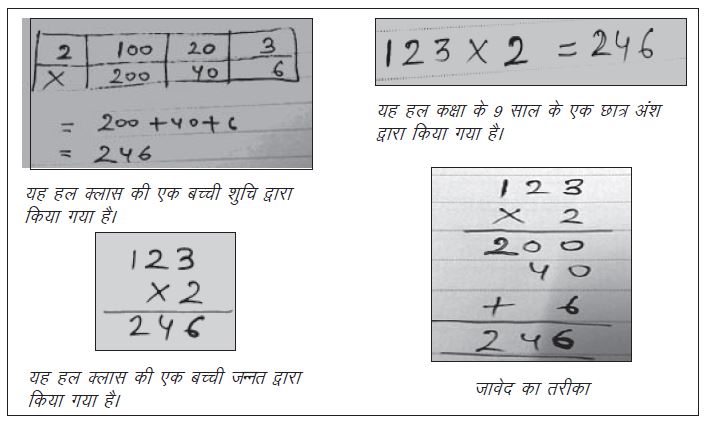 2 100 20 3
X 200 40 6
= 200 + 40 + 6
= 246
यह हल क्लास की एक बच्ची शुचि द्वारा
किया गया है।
123
× 2
246
यह हल क्लास की एक बच्ची जन्नत द्वारा
किया गया है।
123 × 2 = 246
यह हल कक्षा के 9 साल के एक छात्र अंश
द्वारा किया गया है।
1 2 3
× 2
2 0 0
4 0
+ 6
2 4 6
जावेद का तरीका